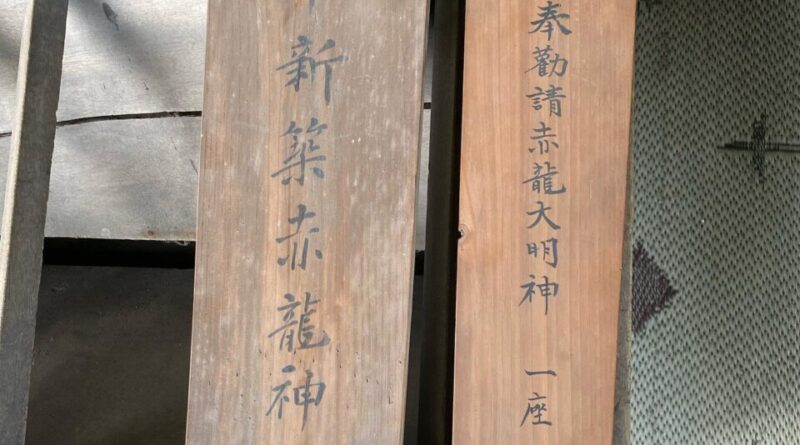 奉勸請赤龍大明神 一座
新築赤龍神